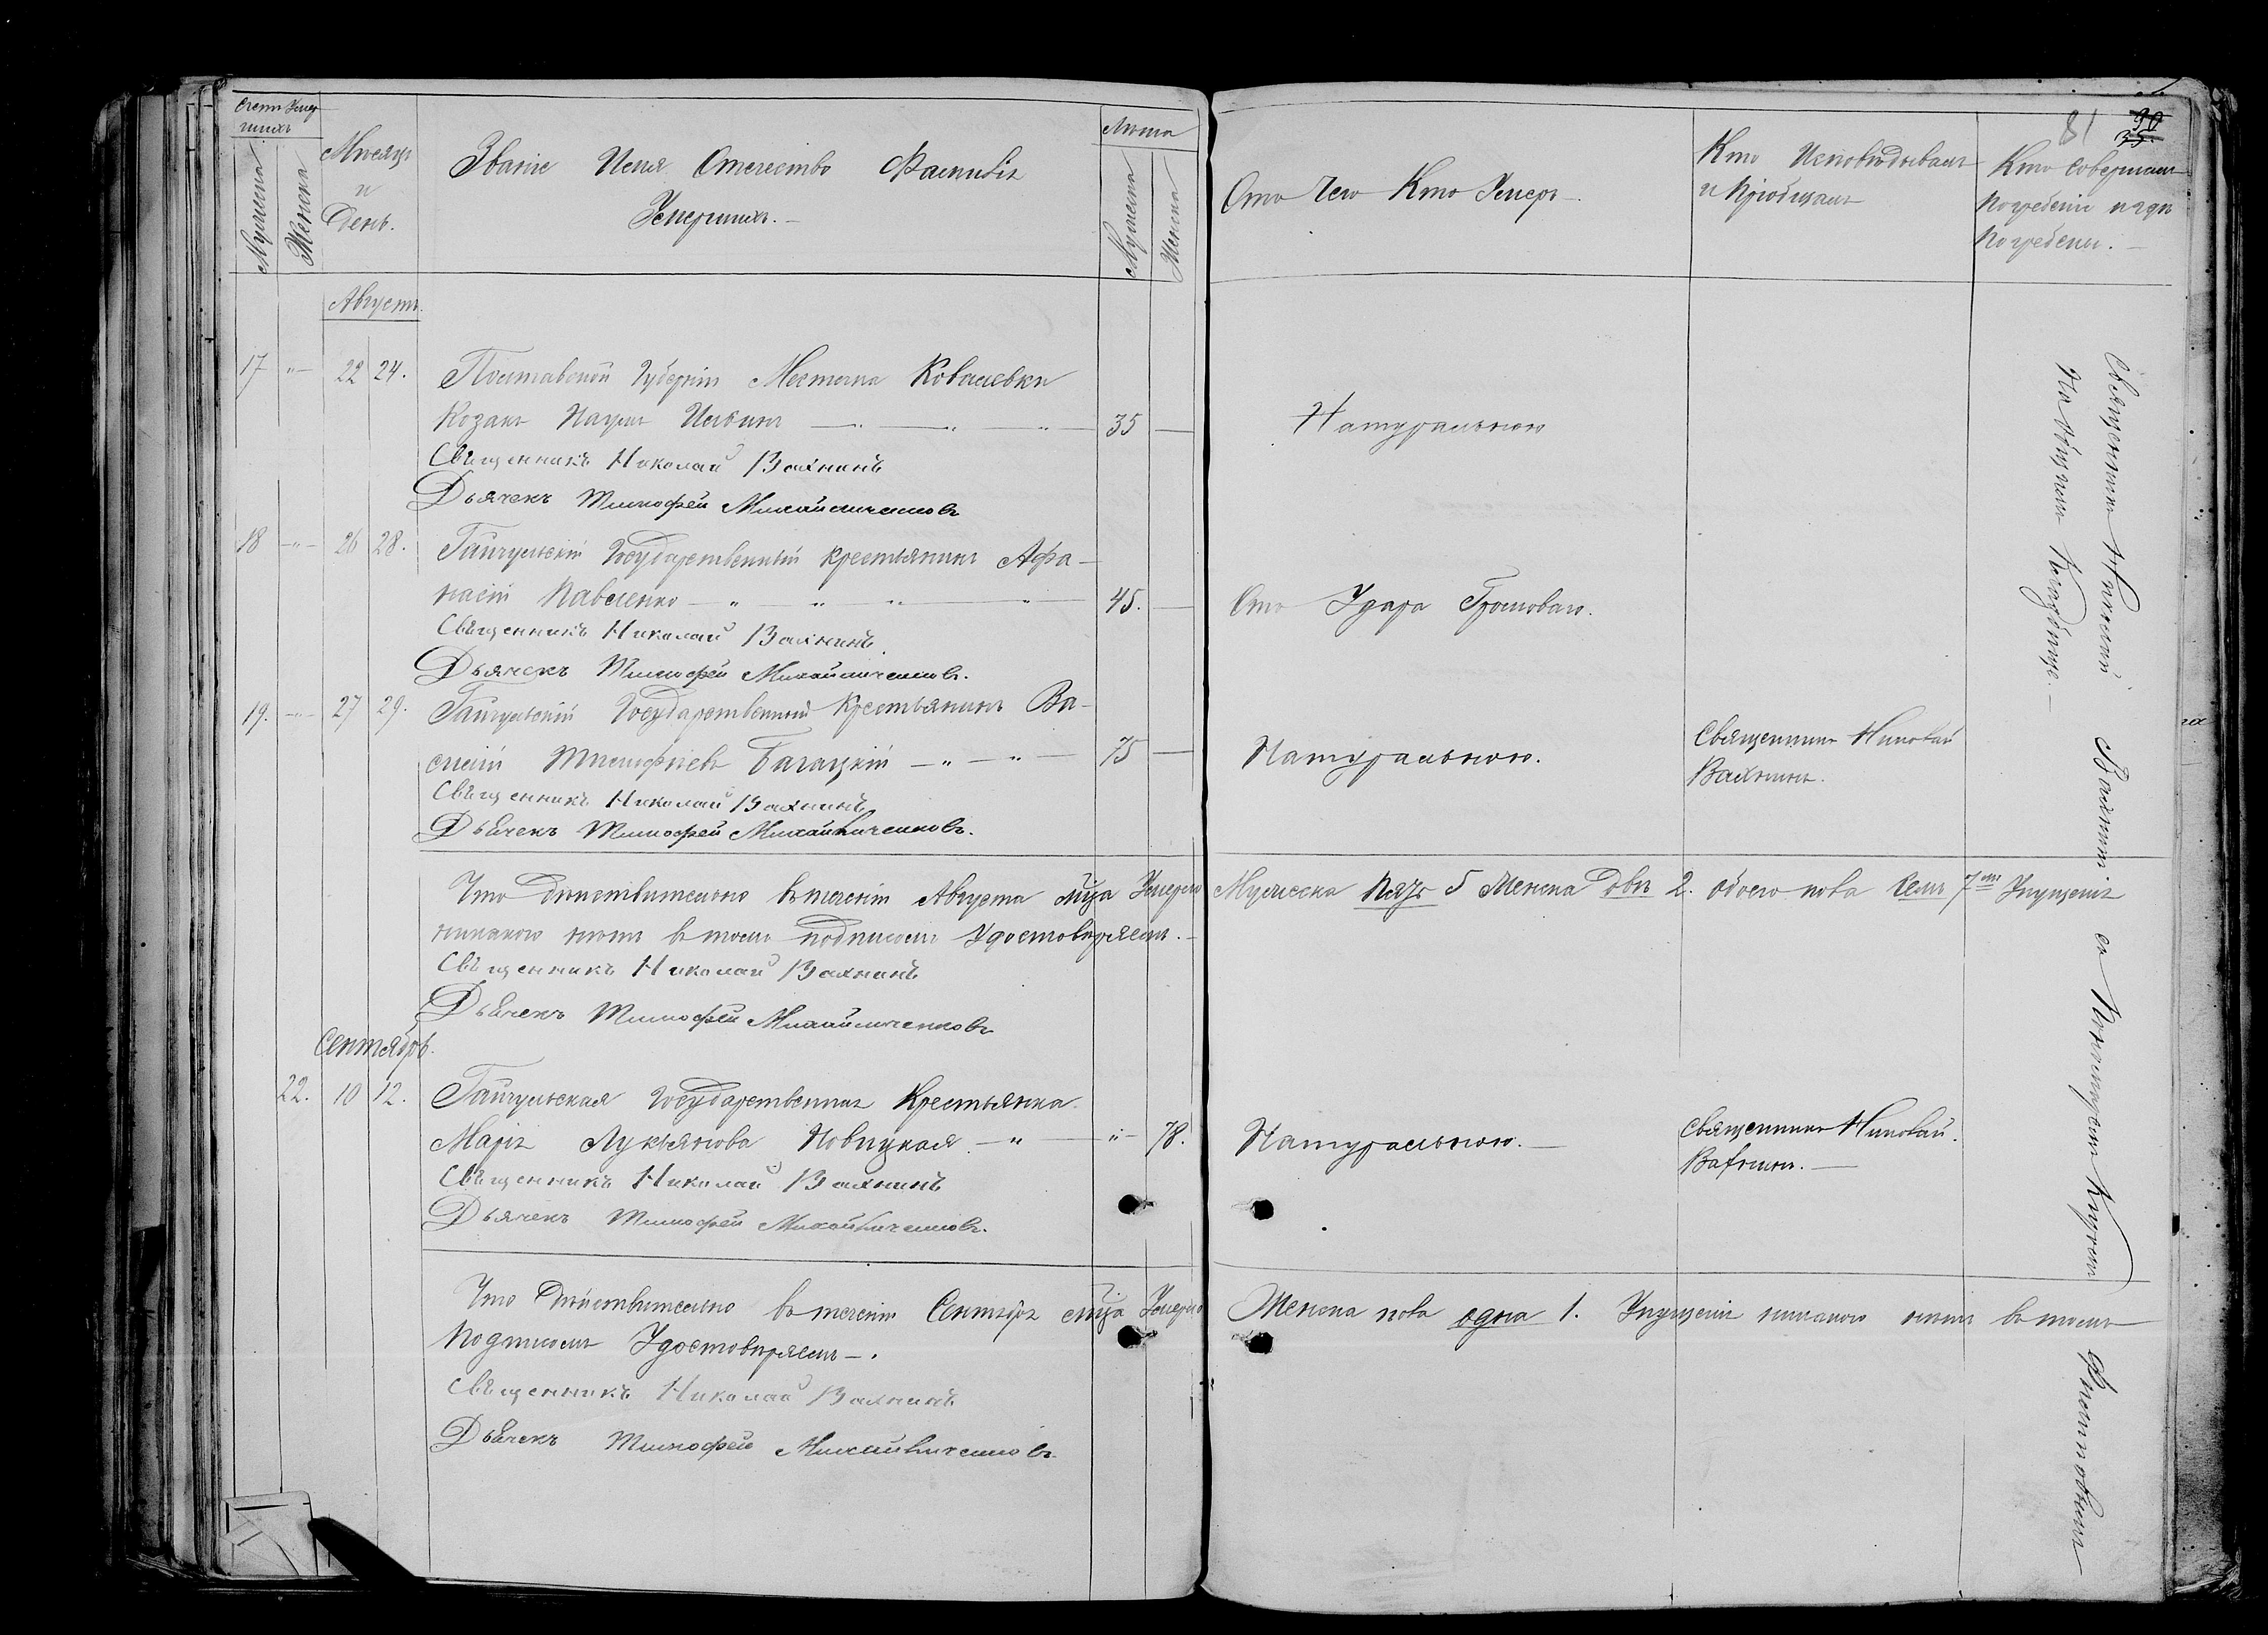 Счетъ Умер
шихъ
Мужеска
Женска
Месяцъ
и
День.
Званіе Имя Отечество Фамилія
Умершихъ. —
Лета
Мужеска
Женска
Отъ Чего Кто Умеръ —.
Кто Исповедывалъ
и Пріобщалъ
Кто Совершалъ
Погребеніе и где
Погребены. —
81
30
35
Августъ.
17 „— 22 24. Полтавской Губерніи Местечка Ковалевки
Козакъ 35 — Натуральною
Священникъ Николай Вахнинъ
Дьячекъ Тимофей Михайличенковъ
18 —„— 26 28. Гайчульскій Государственный крестьянинъ Афа-
насій Павленко — „ „ „ „ — 45. — Отъ Удара Громоваго.
Священникъ Николай Вахнинъ.
Дьячекъ Тимофей Михайличенковъ.
19. —„— 27 29. Гайчульскій Государственный Крестьянинъ Ва-
силій Тимофеевъ Багацкій — „ — „ — 75 — Натуральною. Священникъ Николай
Вахнинъ.
Священникъ Николай Вахнинъ
Дьячекъ Тимофей Михайличенковъ.
Что Действительно въ теченіи Августа м͠ца Умерло Мужеска Пять 5 Женска Две 2. обоего пола Семь 7мъ Упущенія
никакого нетъ въ томъ подписомъ Удостоверяемъ. —
Священникъ Николай Вахнинъ
Дьячекъ Тимофей Михайличенковъ
Сентябрь.
22. 10 12. Гайчульская Государственная Крестьянка
Марія Лукьянова Новицкая. — „ — „ — 78. Натуральною. — Священникъ Николай.
Вахнинъ. —
Священникъ Николай Вахнинъ
Дьячекъ Тимофей Михайличенковъ.
Что Действительно въ теченіи Сентября м͠ца Умерло Женска пола одна 1. Упущенія никакого нетъ въ томъ
Подписомъ Удостоверяемъ —.
Священникъ Николай Вахнинъ
Дьячекъ Тимофей Михайличенковъ
Священникъ Николай Вахнинъ съ Причетомъ
На общемъ Кладбище. —